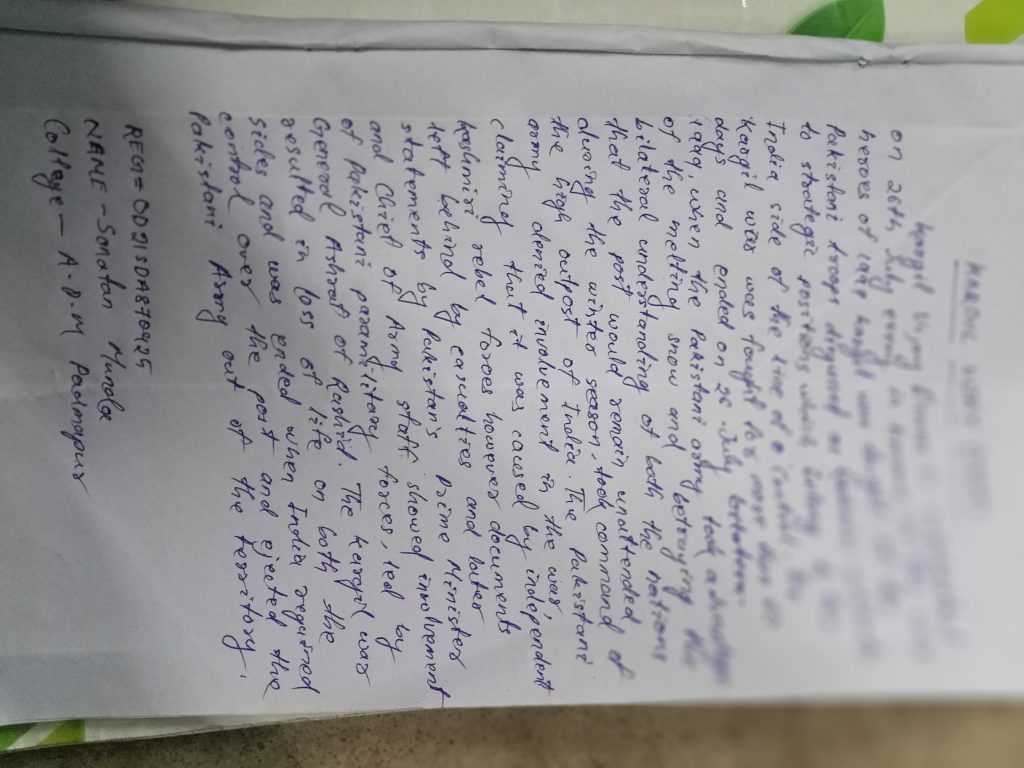 Kargil Vijay Diwas is
on 26th July every in
heroes of
Pakistani troops disguised as
to strategic positions which
India side of the line of control. The
Kargil was was fought for more than
days and ended on 26 July
1999, when the Pakistani army took advantage
of the melting snow and betraying the
bilateral understanding of both the nations
that the post would remain unattended
during the winter season, took command of
the high outpost of India. The Pakistani
army denied involvement in the war,
claiming that it was caused by independent
Kashmiri rebel forces however documents
left behind by casualties and later
statements by Pakistan's Prime Minister
and Chief of Army staff showed involvement
of Pakistani paramilitary forces, led by
General Ashraf of Rashid. The kargil war
resulted in loss of life on both the
Sides and was ended when India regained
control over the post and ejected the
Pakistani Army out of the territory.
REGN= OD21SDA870925
NAME - Sanatan Munda
College - A.D.M Padmapur